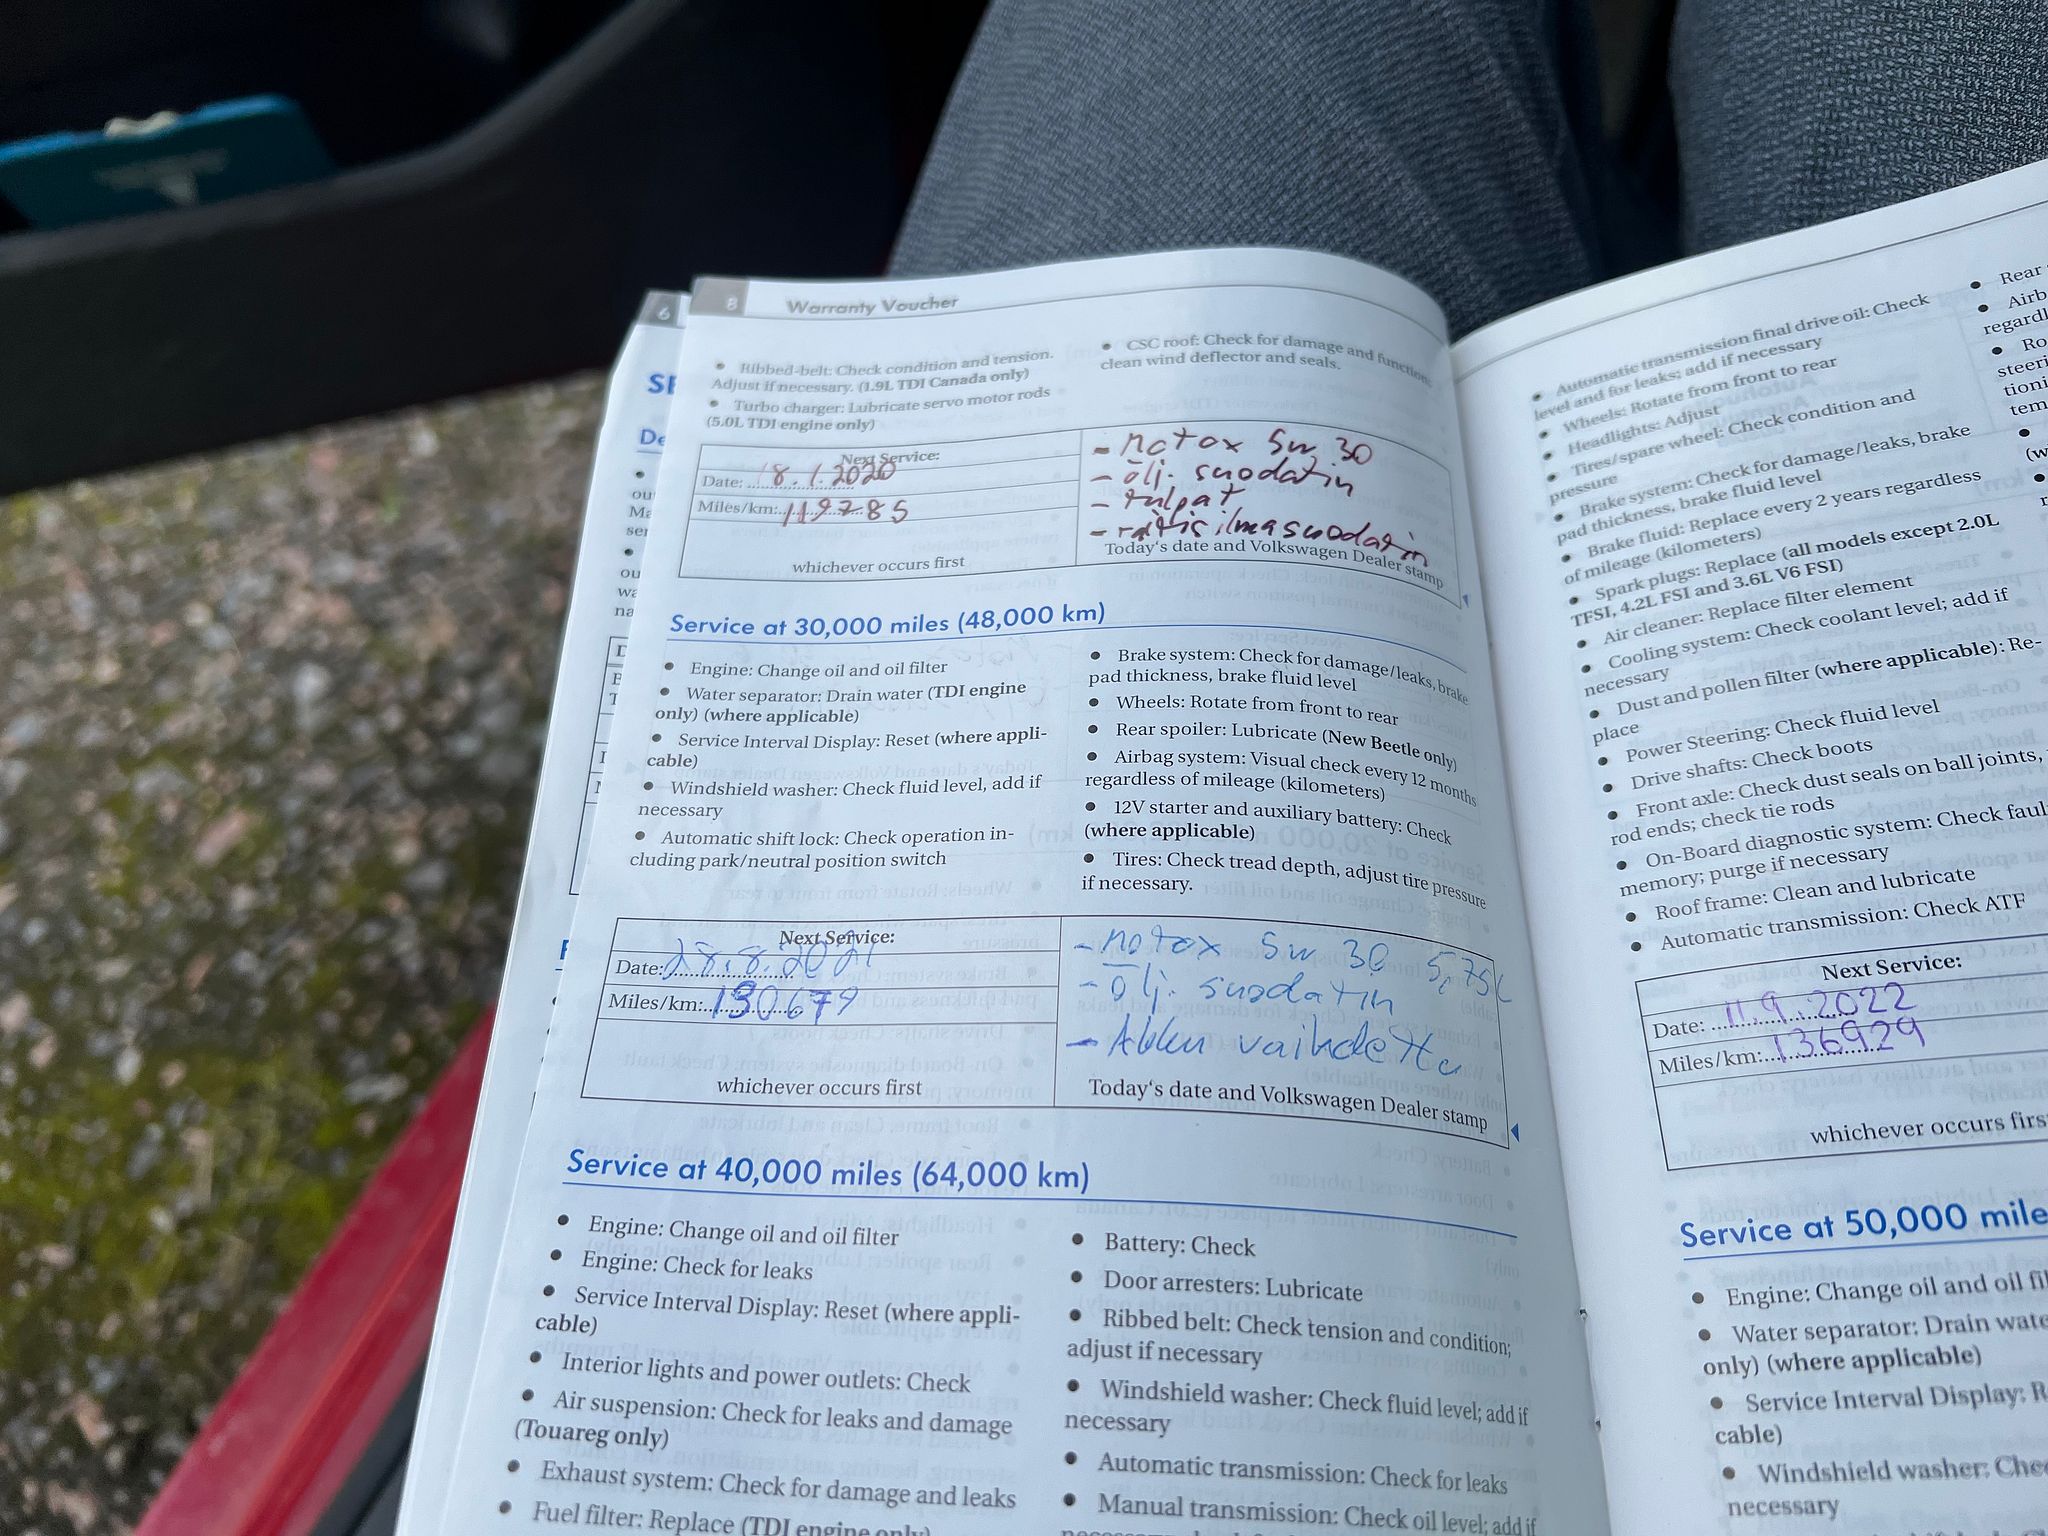 8 Warranty Voucher
6
• Ribbed-belt: Check condition and tension.
Adjust if necessary. (1.9L TDI Canada only)
• Turbo charger: Lubricate servo motor rods
(5.0L TDI engine only)
• CSC roof: Check for damage and function;
clean wind deflector and seals.
Next Service:
Date: 18.1.2020
Miles/km: 119785
whichever occurs first
- motox 5w 30
-ölj. suodatin
- tulpat
- raitisilmasuodatin
Today's date and Volkswagen Dealer stamp
Service at 30,000 miles (48,000 km)
• Engine: Change oil and oil filter
• Water separator: Drain water (TDI engine
only) (where applicable)
• Service Interval Display: Reset (where appli-
cable)
• Windshield washer: Check fluid level, add if
necessary
• Automatic shift lock: Check operation in-
cluding park/neutral position switch
• Brake system: Check for damage/leaks, brake
pad thickness, brake fluid level
• Wheels: Rotate from front to rear
• Rear spoiler: Lubricate (New Beetle only)
• Airbag system: Visual check every 12 months
regardless of mileage (kilometers)
• 12V starter and auxiliary battery: Check
(where applicable)
• Tires: Check tread depth, adjust tire pressure
if necessary.
Next Service:
Date: 28.8.2021
Miles/km: 130679
whichever occurs first
- motox 5w 30 5,75L
- ölj. suodatin
- Akku vaihdettu
Today's date and Volkswagen Dealer stamp
Service at 40,000 miles (64,000 km)
• Engine: Change oil and oil filter
• Engine: Check for leaks
• Service Interval Display: Reset (where appli-
cable)
• Interior lights and power outlets: Check
• Air suspension: Check for leaks and damage
(Touareg only)
• Exhaust system: Check for damage and leaks
• Fuel filter: Replace (TDI engine only)
• Battery: Check
• Door arresters: Lubricate
• Ribbed belt: Check tension and condition;
adjust if necessary
• Windshield washer: Check fluid level; add if
necessary
• Automatic transmission: Check for leaks
• Manual transmission: Check oil level; add if
• Automatic transmission final drive oil: Check
level and for leaks; add if necessary
• Wheels: Rotate from front to rear
• Headlights: Adjust
• Tires/spare wheel: Check condition and
pressure
• Brake system: Check for damage/leaks, brake
pad thickness, brake fluid level
• Brake fluid: Replace every 2 years regardless
of mileage (kilometers)
• Spark plugs: Replace (all models except 2.0L
TFSI, 4.2L FSI and 3.6L V6 FSI)
• Air cleaner: Replace filter element
• Cooling system: Check coolant level; add if
necessary
• Dust and pollen filter (where applicable): Re-
place
• Power Steering: Check fluid level
• Drive shafts: Check boots
• Front axle: Check dust seals on ball joints,
rod ends; check tie rods
• On-Board diagnostic system: Check faul
memory; purge if necessary
• Roof frame: Clean and lubricate
• Automatic transmission: Check ATF
Next Service:
Date: 11.9.2022
Miles/km: 136929
whichever occurs firs
Service at 50,000 mile
• Engine: Change oil and oil fil
• Water separator: Drain wate
only) (where applicable)
• Service Interval Display: R
cable)
• Windshield washer: Che
necessary
• Rear
• Airb
regardl
• Ro
steeri
tioni
tem